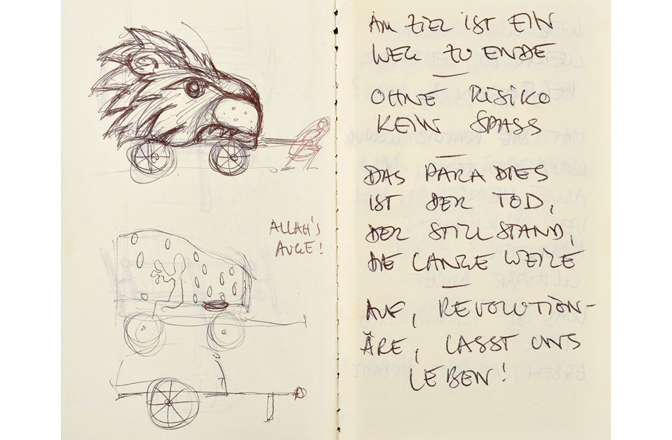 ALLAH'S
AUGE!
AM ZIEL IST EIN
WEG ZU ENDE
OHNE RISIKO
KEIN SPASS
DAS PARADIES
IST DER TOD,
DER STILLSTAND,
DIE LANGE WEILE
AUF, REVOLUTION-
ÄRE, LASST UNS
LEBEN!